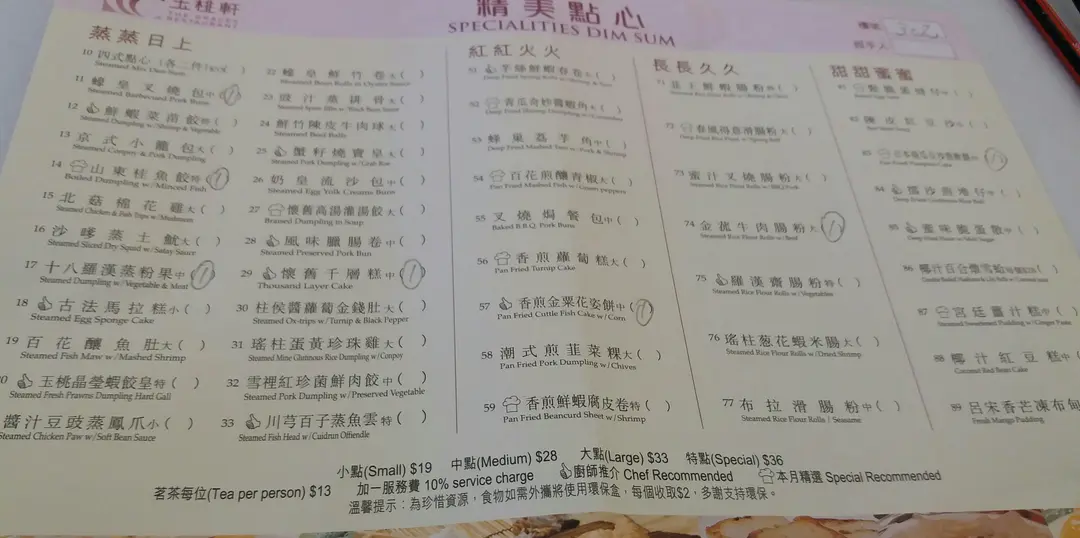 玉桃軒
RESTAURANT
精美點心
SPECIALITIES DIM SUM
蒸蒸日上
10 四式點心 (各二件)
11 蠔皇叉燒包中( )
Steamed Barbecued Pork Buns
12 鮮蝦菜苗餃特( )
Steamed Dumpling w/Shrimp & Vegetable
13 京式小籠包大( )
Steamed Conpoy & Pork Dumpling
14 山東桂魚餃特( )
Boiled Dumpling w/Minced Fish
15 北菇棉花雞大( )
Steamed Chicken & Fish Tripe w/Mushroom
16 沙嗲蒸土魷大( )
Steamed Sliced Dry Squid w/Satay Sauce
17 十八羅漢蒸粉果中( )
Steamed Dumpling w/Vegetable & Meat
18 古法馬拉糕小( )
Steamed Egg Sponge Cake
19 百花釀魚肚大( )
Steamed Fish Maw w/Mashed Shrimp
玉桃晶瑩蝦餃皇特( )
Steamed Fresh Prawns Dumpling Hard Gall
醬汁豆豉蒸鳳爪小( )
Steamed Chicken Paw w/Soft Bean Sauce
22 蠔皇鮮竹卷大( )
Steamed Bean Rolls in Oysters Sauce
23 豉汁蒸排骨大( )
Steamed Spare Ribs w/Black Bean Sauce
24 鮮竹陳皮牛肉球大( )
Steamed Beef Balls
25 蟹籽燒賣皇大( )
Steamed Pork Dumpling w/Crab Roe
26 奶皇流沙包中( )
Steamed Egg Yolk Creamy Buns
27 懷舊高湯灌湯餃大( )
Braised Dumpling in Soup
28 風味臘腸卷中( )
Steamed Preserved Pork Bun
29 懷舊千層糕中( )
Thousand Layer Cake
30 柱侯醬蘿蔔金錢肚大( )
Steamed Ox-trips w/Turnip & Black Pepper
31 瑤柱蛋黃珍珠雞大( )
Steamed Mine Glutinous Rice Dumpling w/Conpoy
32 雪裡紅珍菌鮮肉餃中( )
Steamed Pork Dumpling w/Preserved Vegetable
33 川芎百子蒸魚雲特( )
Steamed Fish Head w/Cuidrun Offiendle
紅紅火火
51 芋絲鮮蝦春卷
52 青瓜奇妙醬蝦角大( )
53 蜂巢荔芋角中( )
Deep Fried Mashed Taro w/Pork & Shrimp
54 百花煎釀青椒大( )
Pan Fried Mashed Fish w/Green peppers
55 叉燒焗餐包中( )
Baked B.B.Q. Pork Buns
56 香煎蘿蔔糕大( )
Pan Fried Turnip Cake
57 香煎金粟花姿餅中( )
Pan Fried Cuttle Fish Cake w/Corn
58 潮式煎韮菜粿大( )
Pan Fried Pork Dumpling w/Chives
59 香煎鮮蝦腐皮卷特( )
Pan Fried Beancurd Sheet w/Shrimp
長長久久
71 韮王鮮蝦腸粉特( )
72 春風得意滑腸粉大( )
73 蜜汁叉燒腸粉大( )
Steamed Rice Flour Rolls w/BBQ Pork
74 金菰牛肉腸粉大( )
Steamed Rice Flour Rolls w/Beef
75 羅漢齋腸粉特( )
Steamed Rice Flour Rolls w/Vegetables
76 瑤柱葱花蝦米腸大( )
Steamed Rice Flour Rolls w/Dried Shrimp
77 布拉滑腸粉中( )
Steamed Rice Flour Rolls / Sesame
甜甜蜜蜜
82 陳皮紅豆沙小( )
84 擂沙湯丸仔
85 蜜味脆蛋散中( )
86 椰汁百合燉雪蛤
87 宮廷薑汁糕中(
Steamed Sweetened Pudding w/Ginger Paste
88 椰汁紅豆糕中(
Coconut Red Bean Cake
89 呂宋香芒凍布甸
Fresh Mango Pudding
小點(Small) $19 中點(Medium) $28 大點(Large) $33 特點(Special) $36
茗茶每位(Tea per person) $13 加一服務費 10% service charge 廚師推介 Chef Recommended 本月精選 Special Recommended
溫馨提示：為珍惜資源，食物如需外攜將使用環保盒，每個收取$2，多謝支持環保。